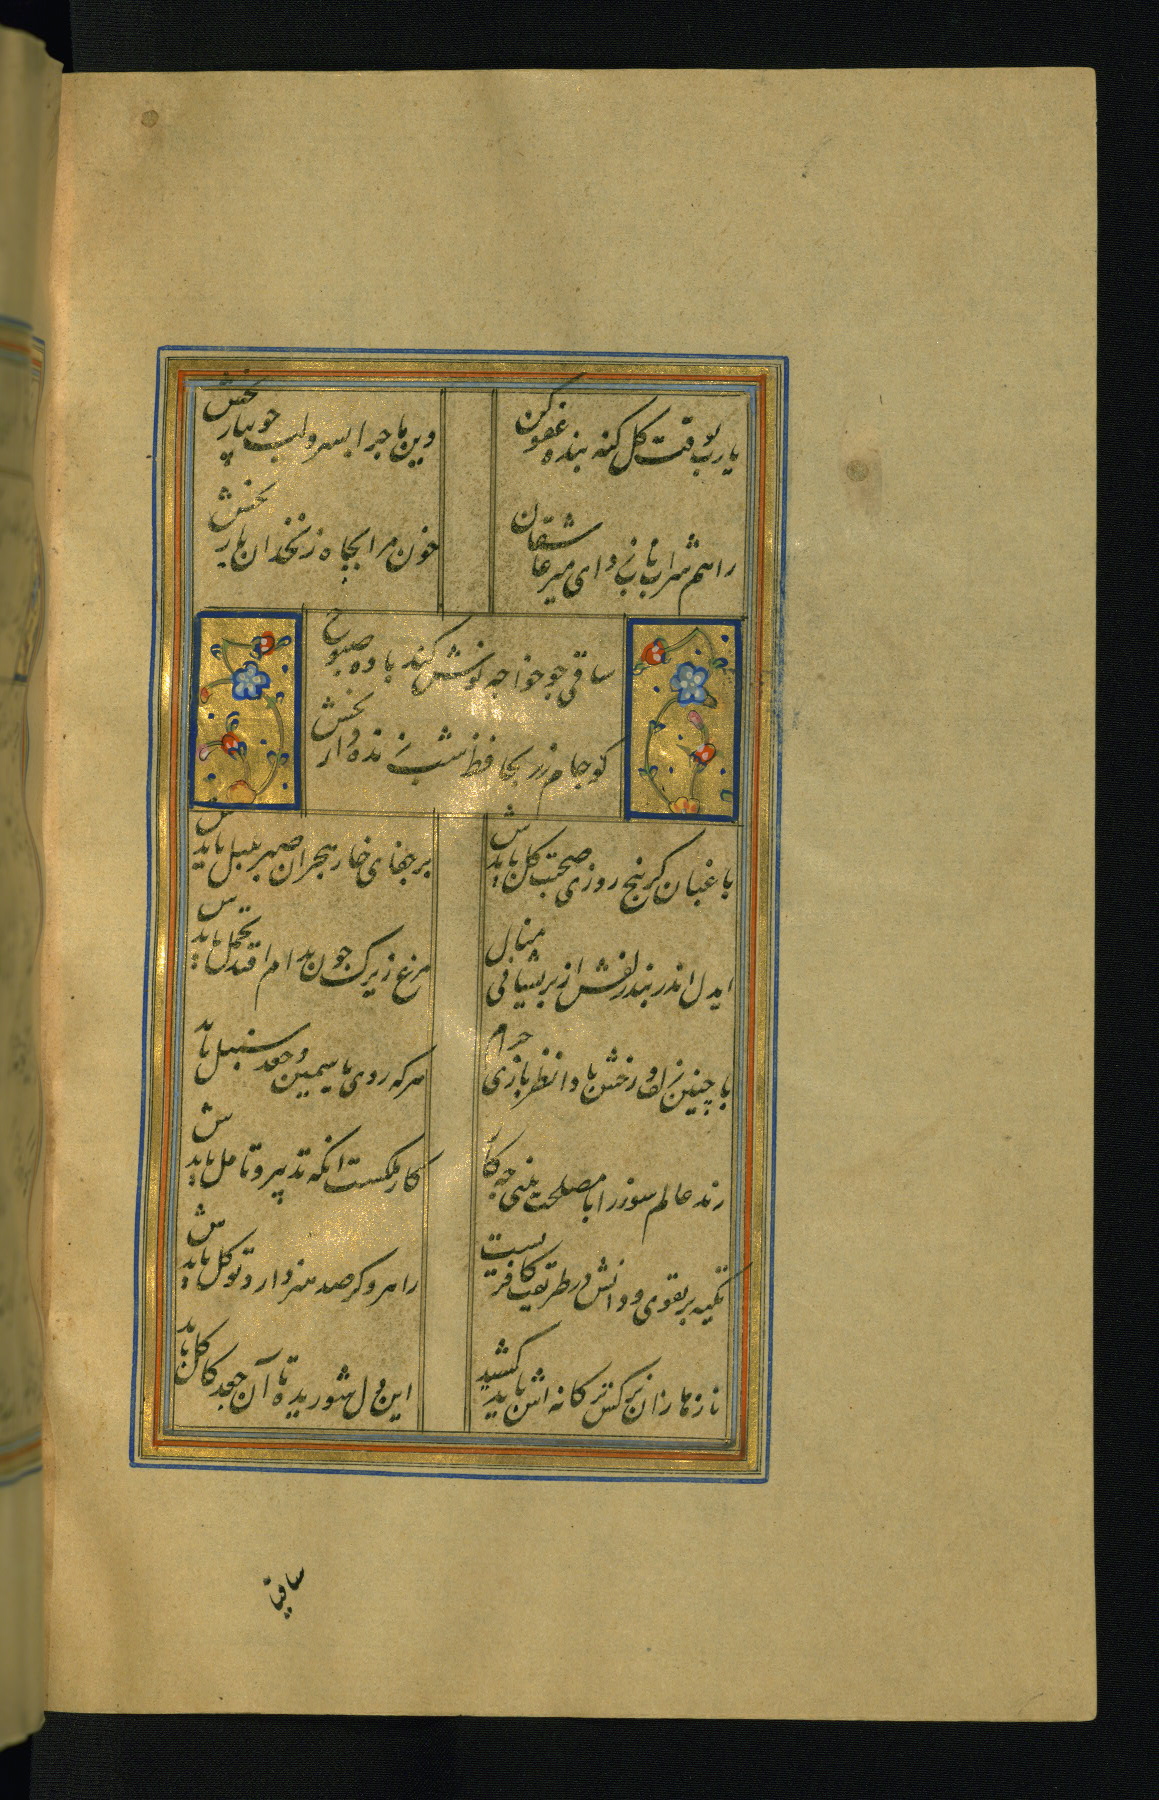 یارب بوقت کل کنه بنده عفو کن
وین ماجرا بسرو لب جویبار بخش
راهم شراب ناب ده ای میر عاشقان
خون مرا بچاه زنخدان یار بخش
ساقی جو خواجه نوش کند باده صبوح
کو جام زر بحافظ شب زنده دار بخش
باغبان کر پنج روزی صحبت کل بایدش
بر جفای خار هجران صبر بلبل بایدش
ایدل اندر بند زلفش از پریشانی منال
مرغ زیرک جون بدام افتد تحمل بایدش
با چنین زلف و رخش بادا نظر بازی حرام
هرکه روی یاسمین و جعد سنبل بایدش
رند عالم سوز را با مصلحت بینی جه کار
کار ملکست انکه تدبیر و تامل بایدش
تکیه بر تقوی و دانش در طریقت کافریست
راهرو کر صد هنر دارد توکل بایدش
نازها زان نرکس ترکانه اش باید کشید
این دل شوریده تا آن جعد کاکل باید
ساقیا